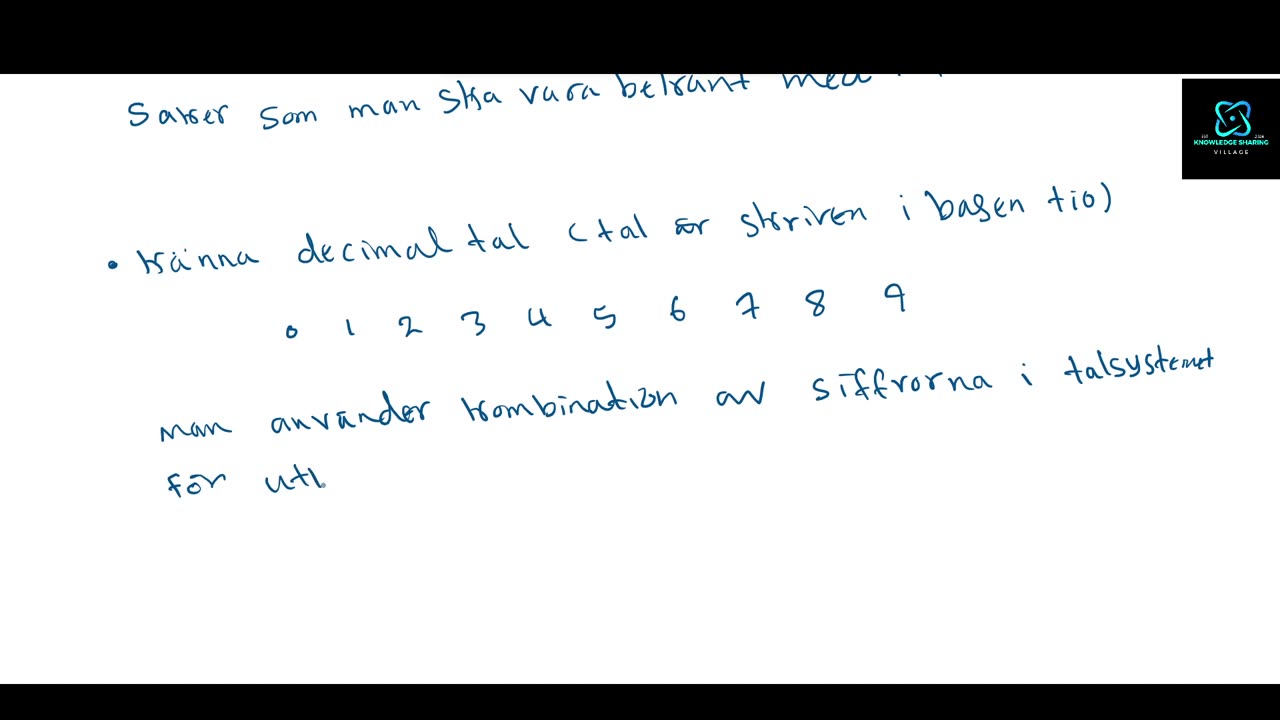 Saker som man ska vara bekant med
• känna decimal tal (tal är skriven i basen tio)
0 1 2 3 4 5 6 7 8 9
man använder kombination av siffrorna i talsystemet
för utt
KNOWLEDGE SHARING
VILLAGE